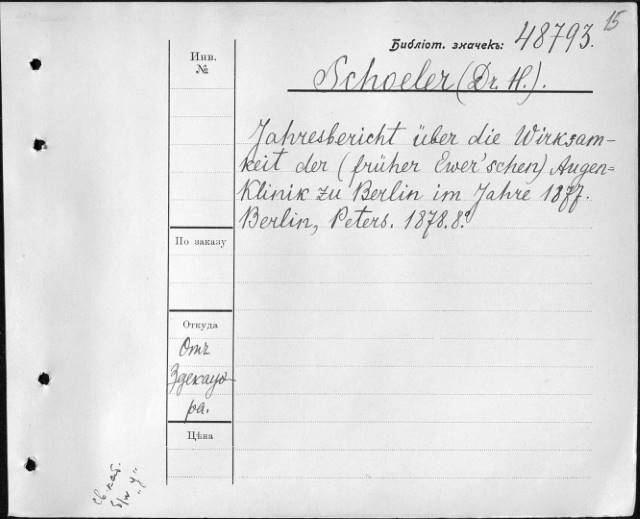 15
Библіот. значекъ: 48793.
Инв.
№
Schoeler (Dr. H.).
Jahresbericht über die Wirksam-
keit der (früher Ewer'schen) Augen=
Klinik zu Berlin im Jahre 1877.
Berlin, Peters. 1878. 8º
По заказу
Откуда
Отъ
Здекауэ-
ра.
Цѣна